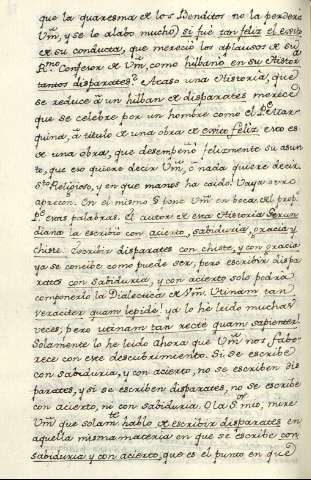 que la quaresma de los Benditos no la perdere
Vm, y se lo alabo mucho) si fue tan feliz el exito
de su conducta, que mereció los aplausos de su
Rmo Confesor de Vm, como hilbano en su Histor
tantos disparates? Acaso una Historia, que
se reduce à un hilban de disparates merece
que se celebre por un hombre como el Pe Mar
quina, à titulo de una obra de exito feliz, esto es
de una obra, que desempeñò felizmente su asun
to, que eso quiere decir Vm, ò nada quiere decir.
Sto Religioso, y en que manos ha caido! Vaya otro
apreton. En el mismo § pone Vm en boca del prop.
Pe estas palabras. El autor de esta Historia Gerun
diana la escribió con acierto, sabiduria, gracia y
chiste. Escribir disparates con chiste, y con gracia
ya se concibe como puede ser, pero escribir dispa
rates con sabiduria, y con acierto solo podrà
componerlo la Dialectica de Vm. Utinam tan
veraciter quam lepidè! ya lo he leido muchas
veces; pero utinam tan rectè quam sapienter!
Solamente lo he leido ahora que Vm nos favo
rece con este descubrimiento. Si se escribe
con sabiduria, y con acierto, no se escriben dis
parates, y si se escriben disparates, no se escribe
con acierto, ni con sabiduria. Ola Sor mio, mire
Vm que solamte hablo de escribir disparates en
aquella misma materia en que se escribe con
sabiduria y con acierto, que es el punto en que